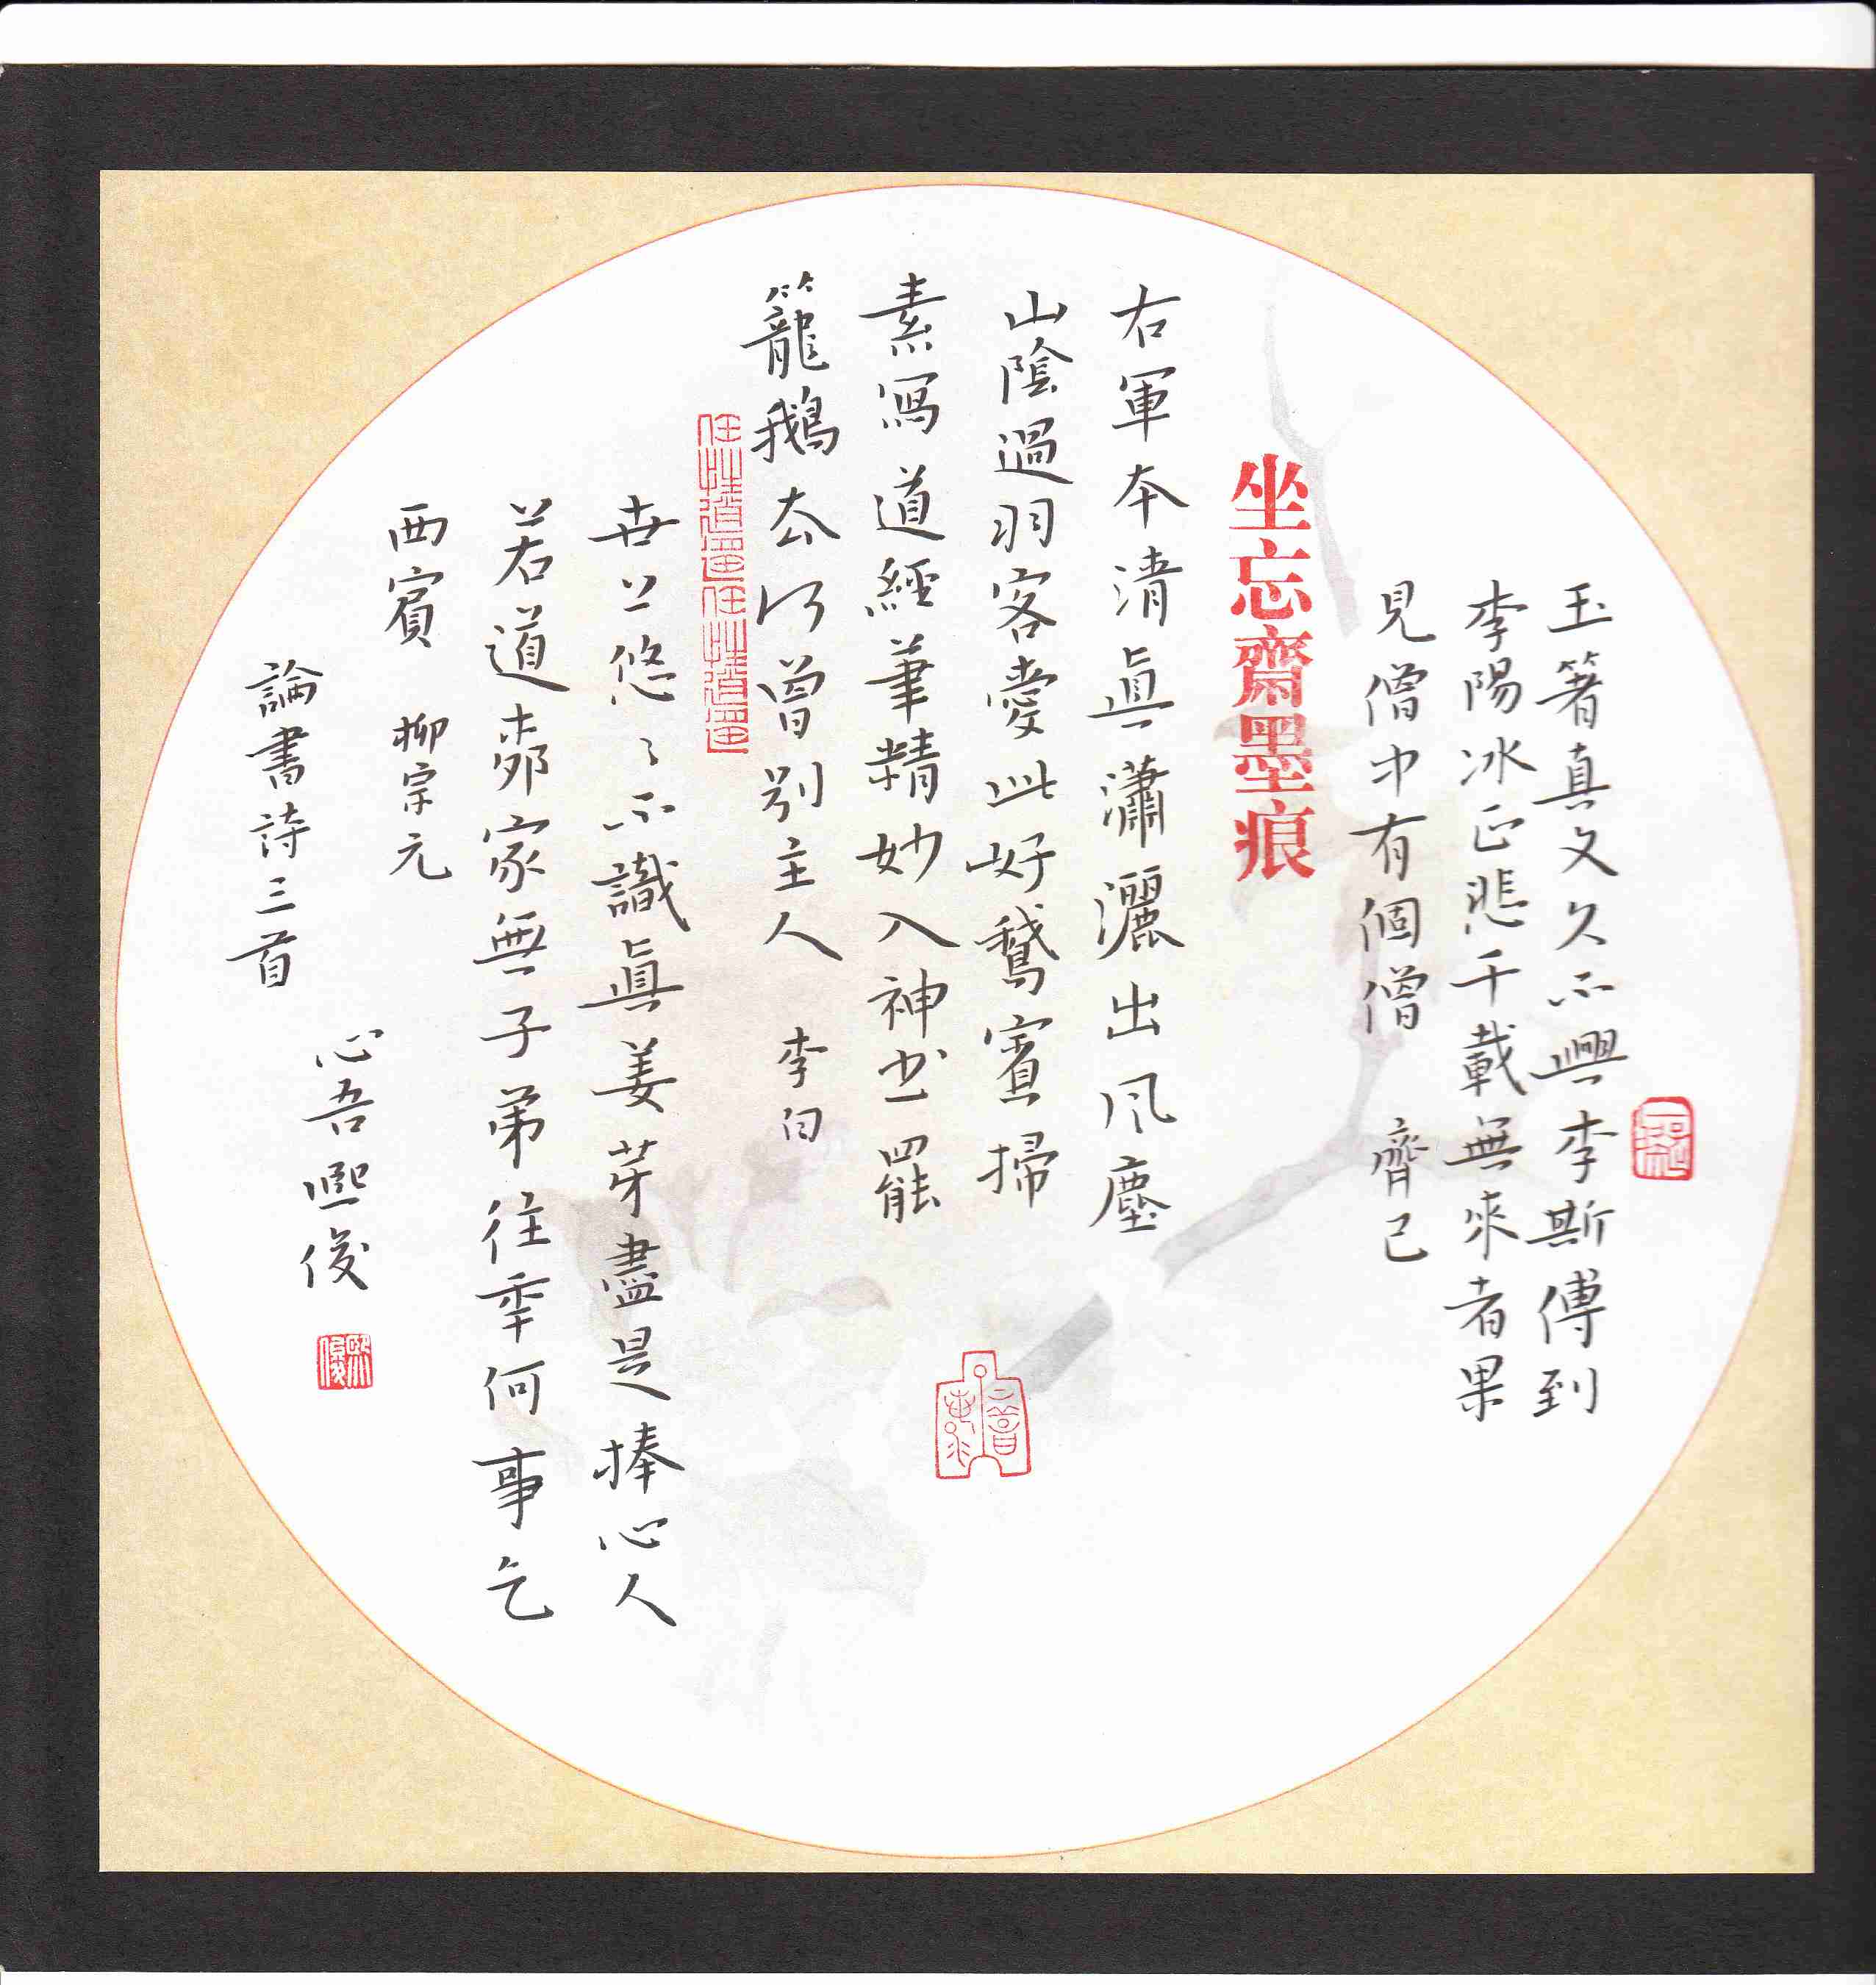 玉箸真文久不興李斯傳到
李陽冰正悲千載無來者果
見僧中有個僧 齊己
坐忘齋墨痕
右軍本清眞瀟灑出风塵
山陰過羽客愛此好鵝賓掃
素寫道經筆精妙入神书罷
籠鵝去何曾别主人 李白
世上悠々不識眞姜芽盡是捧心人
若道柳家無子弟往年何事乞
西賓 柳宗元
論書詩三首
心吾熙俊
熙俊